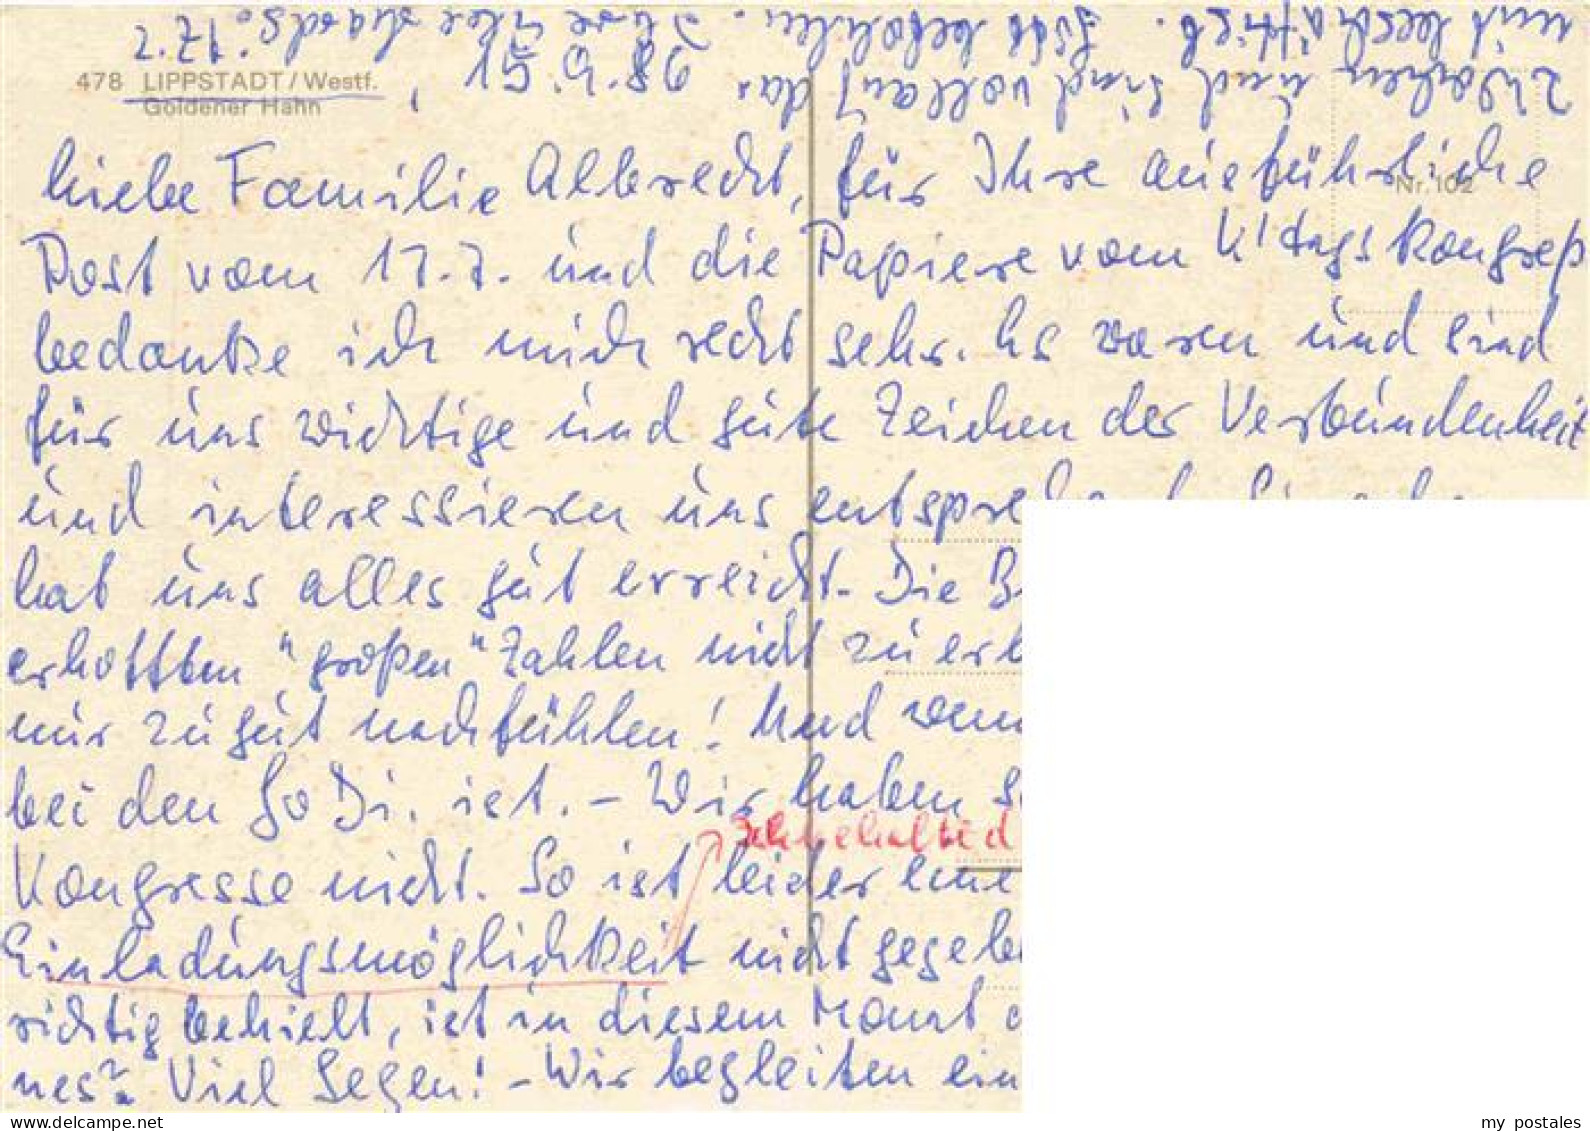 478 LIPPSTADT / Westf.
Goldener Hahn
Nr. 102
Liebe Familie Albrecht, für Ihre ausführliche
Post vom 17.7. und die Papiere vom K'tagskongreß
bedanke ich mich recht sehr. Es waren und sind
für uns wichtige und gute Zeichen der Verbundenheit
und interessieren uns entspre
hat uns alles gut erreicht. Die B
erhofften "großen" Zahlen nicht zu er
nur zu gut nachfühlen! Und wenn
bei den GoDi. ist. – Wir haben
Ich behalte d
Kongresse nicht. So ist leider eine
Einladungsmöglichkeit nicht gegebe
richtig behielt, ist in diesem Monat
nes? Viel Segen! – Wir begleiten ein
2 Wochen und sind vollauf da-
mit beschäftigt. Gott befohlen. Ihre
my postales